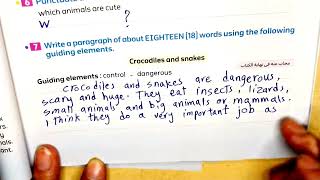 which animals are cute
W ?
7 Write a paragraph of about EIGHTEEN [18] words using the following
guiding elements.
Crocodiles and snakes
Guiding elements: control - dangerous
Crocodiles and snakes are dangerous,
scary and huge. They eat insects, lizards,
small animals and big animals or mammals.
I think they do a very important job as